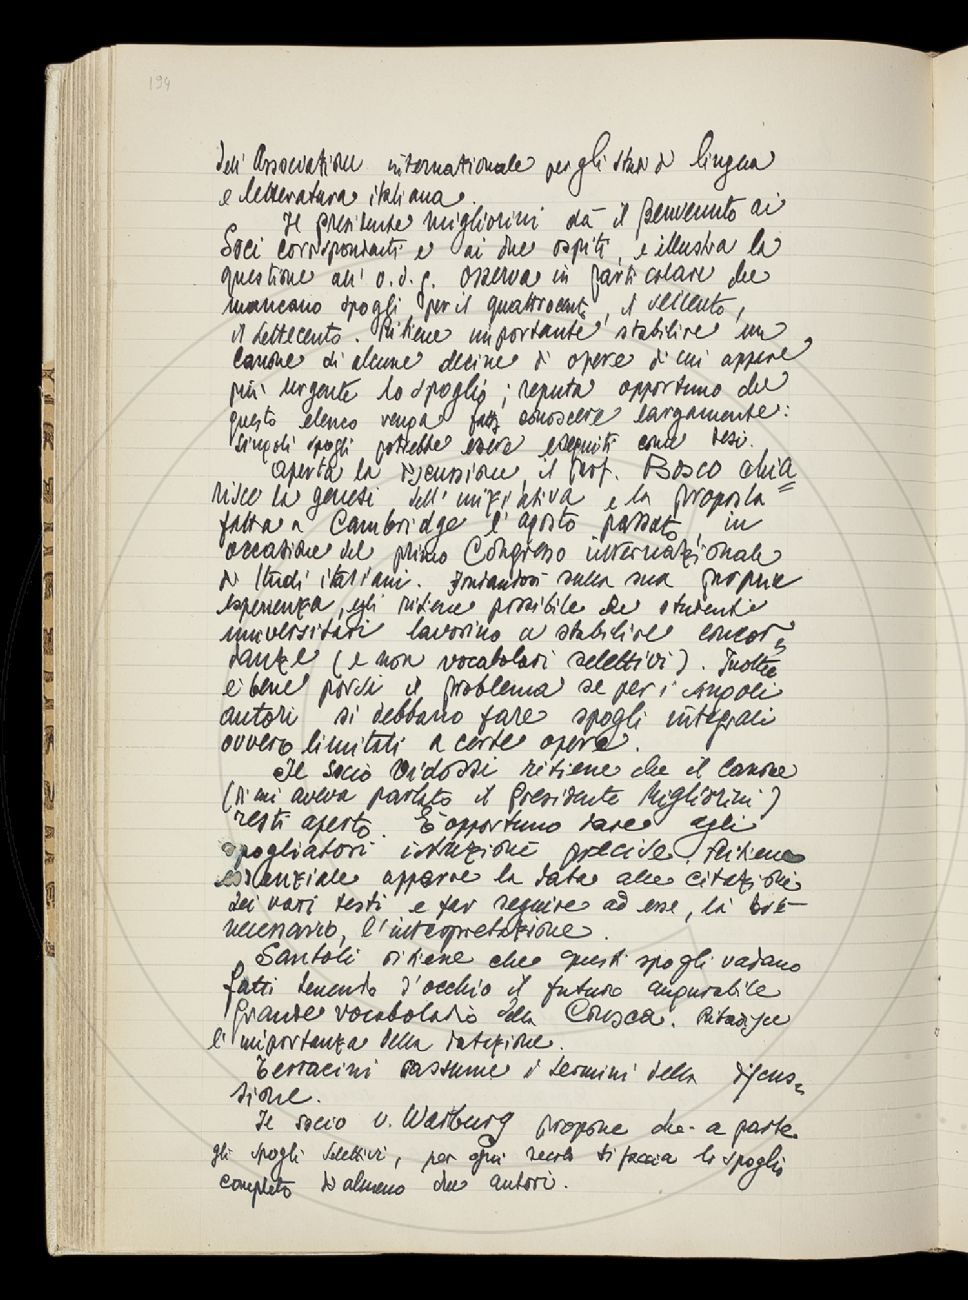 194
dell'Associazione internazionale per gli studi di lingua
e letteratura italiana.
Il presidente Migliorini dà il benvenuto ai
Soci corrispondenti e ai due ospiti, e illustra la
questione all'o.d.g. Osserva in particolare che
mancano spogli per il quattrocento, il seicento,
il settecento. Ritiene importante stabilire un
canone di alcune decine di opere di cui appare
più urgente lo spoglio; reputa opportuno che
questo elenco venga fatto conoscere largamente:
singoli spogli potrebbero essere eseguiti come tesi.
Aperta la discussione, il prof. Bosco chia=
risce la genesi dell'iniziativa e la proposta
fatta a Cambridge l'agosto passato, in
occasione del primo Congresso internazionale
di Studi italiani. Fondandosi sulla sua propria
esperienza, egli ritiene possibile che studenti
universitari lavorino a stabilire concor=
danze (e non vocabolari selettivi). Inoltre
è bene porsi il problema se per i singoli
autori si debbano fare spogli integrali
ovvero limitati a certe opere.
Il Socio Vidossi ritiene che il canone
(di cui aveva parlato il presidente Migliorini)
resti aperto. È opportuno dare agli
spogliatori istruzioni precise. Ritiene
essenziale apporre la data alle citazioni
dei vari testi e far seguire ad esse, là
necessario, l'interpretazione.
Santoli ritiene che questi spogli vadano
fatti tenendo d'occhio il futuro augurabile
grande vocabolario della Crusca. Ribadisce
l'importanza della datazione.
Terracini riassume i termini della discus=
sione.
Il socio v. Wartburg propone che a parte
gli spogli selettivi, per ogni secolo si faccia lo spoglio
completo di almeno due autori.